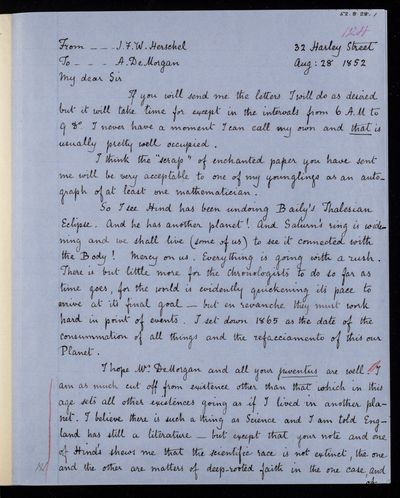 52.8.28.1
From _ _ _ J.F.W. Herschel 32 Harley Street
To _ _ _ A. De Morgan Aug: 28 1852
My dear Sir
If you will send me the letters I will do as desired
but it will take time for except in the intervals from 6 A.M to
I never have a moment I can call my own and that is
usually pretty well occupied.
I think the "scrap" of enchanted paper you have sent
me will be very acceptable to one of my younglings as an auto-
graph of at least one mathematician.
So I see Hind has been undoing Baily's Thalesian
Eclipse. And he has another planet! And Saturn's ring is wide-
ning and we shall live (some of us) to see it connected with
the Body! Mercy on us. Everything is going with a rush.
There is but little more for the chronologists to do so far as
time goes, for the world is evidently quickening its pace to
arrive at its final goal — but en revanche they must work
hard in point of events. I set down 1865 as the date of the
consummation of all things and the refacciamento of this our
Planet.
I hope Mrs. De Morgan and all your juventus are well. I
am as much cut off from existence other than that which in this
age sets all other existences going as if I lived in another pla-
net. I believe there is such a thing as Science and I am told Eng-
land has still a literature — but except that your note and one
of Hind's shews me that the scientific race is not extinct, the one
and the other are matters of deep-rooted faith in the one case, and